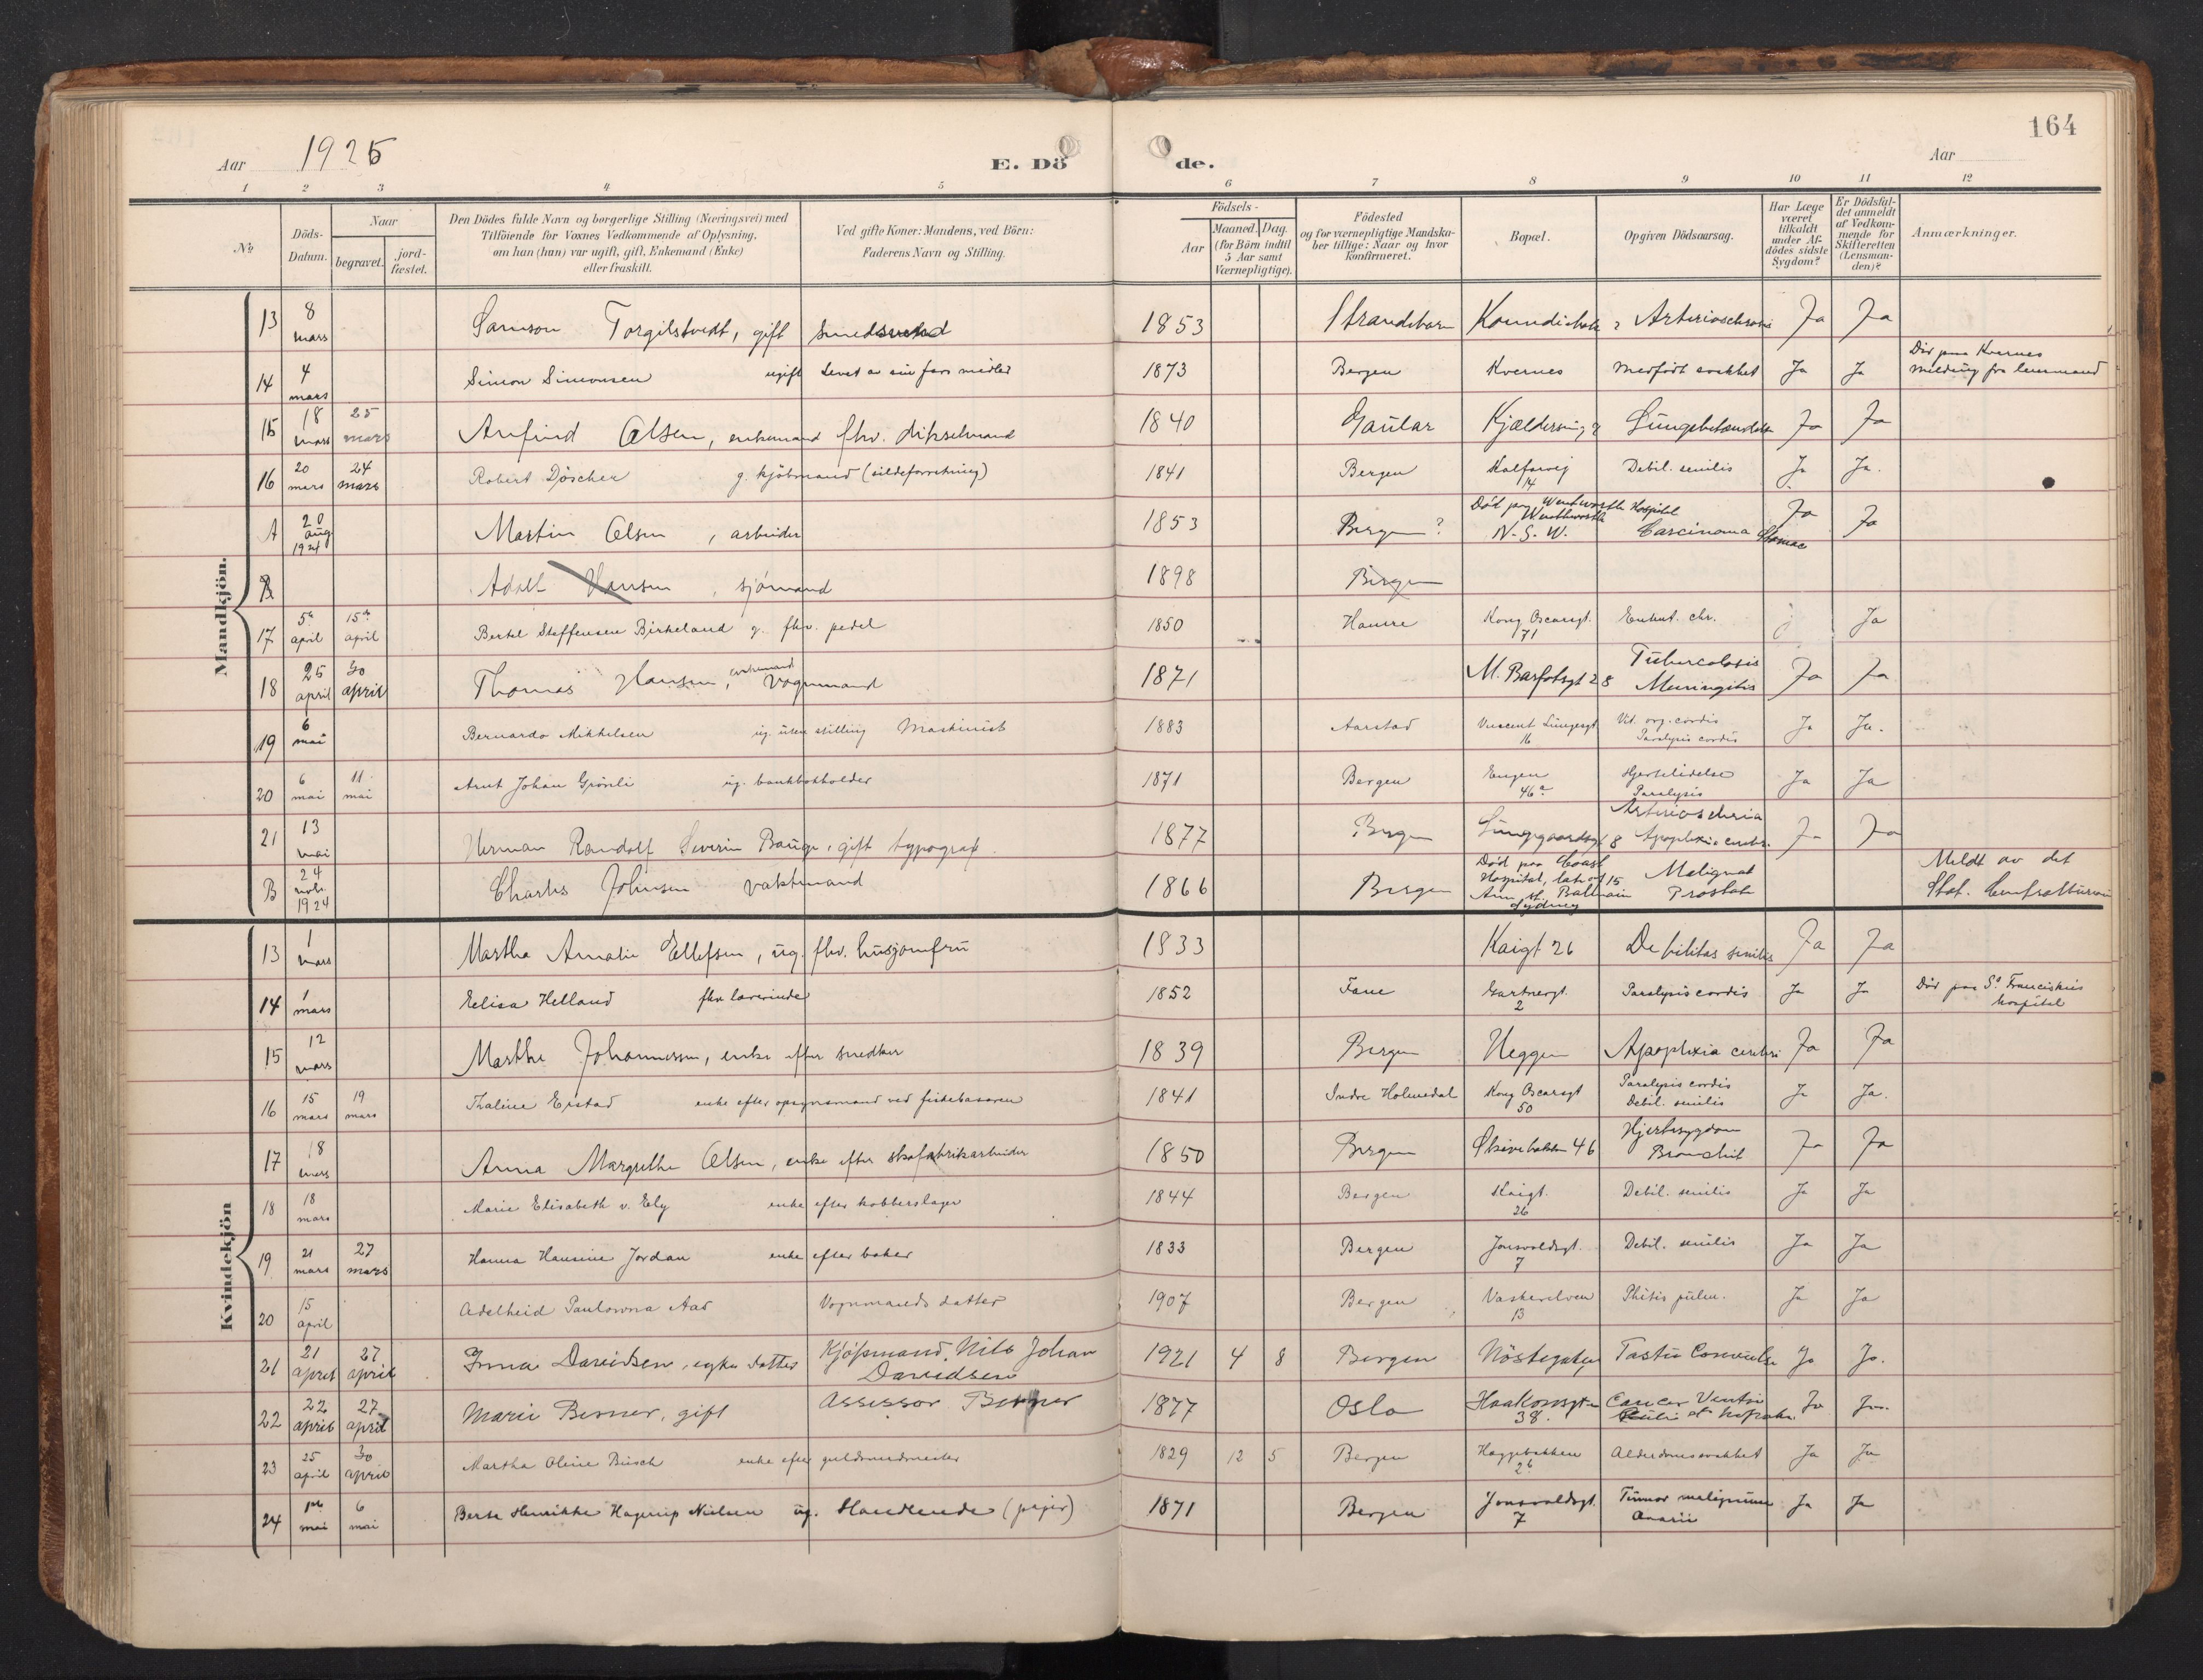 164
Aar 1925
E. Dö de.
Aar
1 2 3 4 5 6 7 8 9 10 11 12
No
Döds-Datum.
Naar
begravet.
jord-fæstet.
Den Dödes fulde Navn og borgerlige Stilling (Næringsvei) med
Tilföiende for Voxnes Vedkommende af Oplysning,
om han (hun) var ugift, gift, Enkemand (Enke)
eller fraskilt.
Ved gifte Koner: Mandens, ved Börn:
Faderens Navn og Stilling.
Födsels-
Aar
Maaned. Dag.
(for Börn indtil
5 Aar samt
Værnepligtige).
Födested
og for værnepligtige Mandska-
ber tillige: Naar og hvor
konfirmeret.
Bopæl.
Opgiven Dödsaarsag.
Har Læge
været
tilkaldt
under Af-
dödes sidste
Sygdom?
Er Dödsfal-
det anmeldt
af Vedkom-
mende for
Skifteretten
(Lensman-
den)?
Anmærkninger.
Mandkjön.
13 8 mars Samson Torgilstvedt, gift 1853 Strandebarm Arteriosclerosis Ja Ja
14 4 mars Simon Simonsen ugift Levet av sin fars midler 1873 Bergen Kvernes Medfödt svakhet Ja Ja Död paa Kvernes
melding fra lensmand
15 18 mars 25 mars Anfind Olsen, enkemand fhv. 1840 Gaular Ja Ja
16 20 mars 24 mars Robert Döscher g. kjöbmand (sildeforretning) 1841 Bergen Kalfarvej 14 Debil. senilis Ja Ja.
A 20 aug 1924 Martin Olsen, arbeider 1853 Bergen? Död paa Wentworth Hospital
Wentworth
N.S.W. Carcinoma Stomac Ja Ja
B Adolf Hansen, sjömand 1898 Bergen
17 5te april 15de april Bertel Steffensen Birkeland g. fhv. pedel 1850 Hamre Kong Oscarsgt. 71 chr. Ja
18 25 april 30 april Thomas Hansen, enkemand Vognmand 1871 M. Barfotsgt 28 Tuberculosis
Meningitis Ja Ja
19 6 mai Bernardo Mikkelsen ug. uten stilling Maskinist 1883 Aarstad Vincent Lungesgt 16 Vit. org. cordis
Paralysis cordis Ja Ja.
20 6 mai 11 mai Arnt Johan Grönli ug. bankbokholder 1871 Bergen Engen 46a Hjertelidelse
Paralysis Ja Ja
21 13 mai Herman Randolf Severin Bauge, gift typograf. 1877 Bergen Lungegaardsgt 8 Apoplexia cerebri Ja Ja
B 24 nobr. 1924 Charles Johnsen vaktmand 1866 Bergen Död paa Coast
Hospital, late of 15
Ann St. Balmain
Sydney Malignat
Prostate Meldt av det
Stat.
Kvindekjön
13 1 mars Martha Amalie Ellefsen, ug. fhv. husjomfru 1833 Kaigt 26 Debilitas senilis Ja Ja
14 1 mars Elisa Helland fhv lærerinde 1852 Fane Gartnergt. 2 Paralysis cordis Ja Ja Död paa St. Franciskus
hospital
15 12 mars Marthe Johannessen, enke efter snedker 1839 Bergen Heggen Apoplexia cerebri Ja Ja
16 15 mars 19 mars Thaline Erstad enke efter opsynsmand ved fiskebasaren 1841 Indre Holmedal Kong Oscarsgt 50 Paralysis cordis
Debil. senilis Ja Ja.
17 18 mars Anna Margrethe Olsen, enke efter skofabrikarbeider 1850 Bergen Skivebakken 46 Hjertesygdom
Bronchit Ja Ja
18 18 mars Marie Elisabeth v. Ely enke efter kobberslager 1844 Bergen Kaigt. 26 Debil. senilis Ja Ja
19 21 mars 27 mars Hanna Hansine Jordan enke efter baker 1833 Bergen Jonsvoldsgt. 7 Debil. senilis Ja Ja
20 15 april Adelheid Paulowna Aas Vognmands datter 1907 Bergen Vaskerelven 13 Phtisis pulm. Ja Ja
21 21 april 27 april Inna Davidsen, egte datter Kjöpmand. Nils Johan
Davidsen 1921 4 8 Bergen Nöstegaten Ja Ja.
22 22 april 27 april Marie Berner, gift Assessor Berner 1877 Oslo Haakonsgtn 38. Cancer Ventri Ja Ja.
23 25 april 30 april Martha Oline Busch enke efter guldsmedmester 1829 12 5 Bergen Heggebakken 26 Alderdomssvakhet Ja Ja
24 1ste mai 6 mai Berte Henrikke Hagerup Nielsen ug. Handlende (papir) 1871 Bergen Jonsvoldsgt. 7 Tumor malignum
ovarii Ja Ja